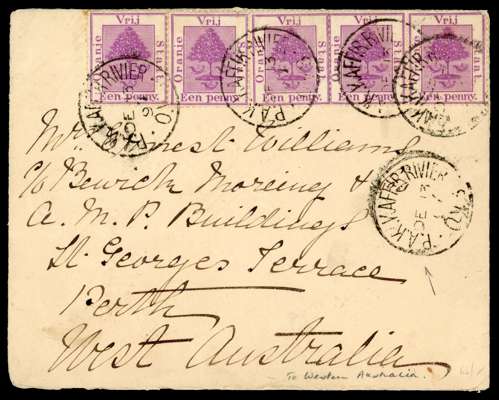 Vrij Vrij Vrij Vrij Vrij
Oranje Staat. Oranje Staat. Oranje Staat. Oranje Staat. Oranje Staat.
Een penny. Een penny. Een penny. Een penny. Een penny.
P.A.K. KAFFIR RIVIER
DE 13
Mr. Ernest Williams
c/o Bewick Moreing &
A. M. P. Buildings
St. Georges Terrace
Perth
West Australia
To Western Australia.